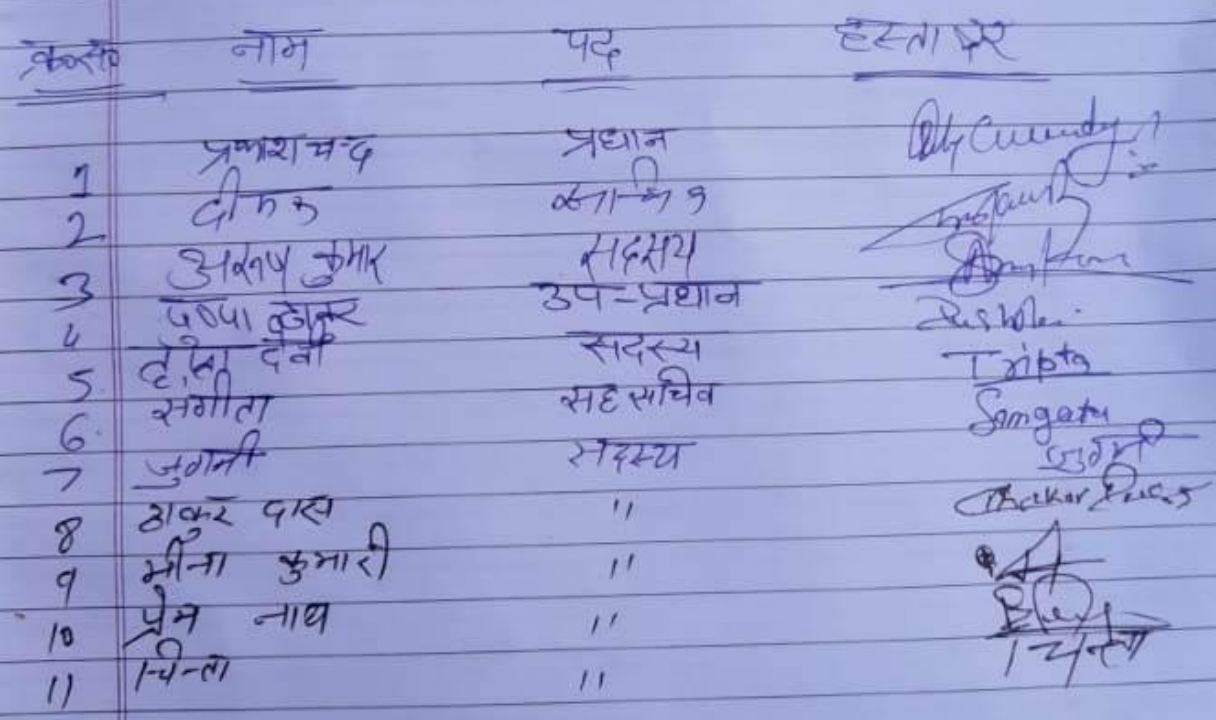 क्र०सं० नाम पद हस्ताक्षर
1 प्रकाश चन्द प्रधान
2 दीपक
3 अरूण कुमार सदस्य
4 उप-प्रधान
5. देवी सदस्य Tripta
6. संगीता सह सचिव Sangeeta
7 जुगनी सदस्य जुगनी
8 ठाकुर दास " Thakur Dass
9 मीना कुमारी "
10 प्रेम नाथ "
11 चिन्ता " चिन्ता